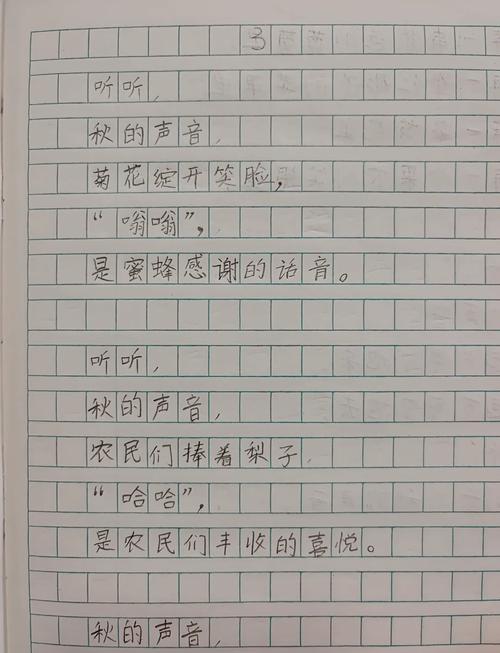 3
听听，
秋的声音，
菊花绽开笑脸，
“嗡嗡”，
是蜜蜂感谢的话音。
听听，
秋的声音，
农民们捧着梨子，
“哈哈”，
是农民们丰收的喜悦。
秋的声音，